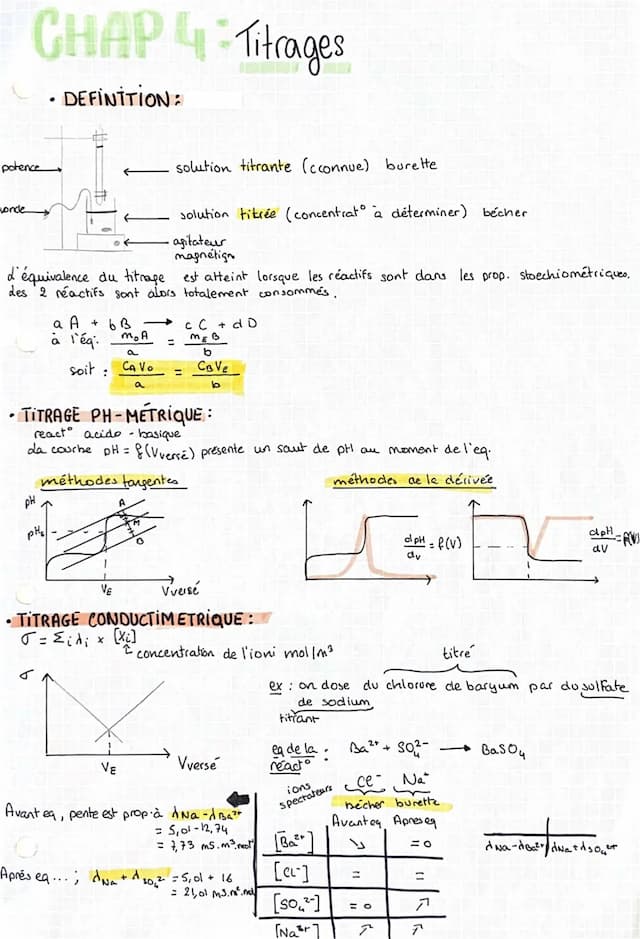 CHAP 4 : Titrages
• DEFINITION :
potence
solution titrante (cconnue) burette
sonde
solution titrée (concentrat° à déterminer) bécher
agitateur
magnétiqn
d'équivalence du titrage est atteint lorsque les réactifs sont dans les prop. stoechiométriques.
des 2 réactifs sont alors totalement consommés.
a A + b B → c C + d D
à l'éq. m₀A / a = mE B / b
soit : CA V₀ / a = CB VE / b
• TITRAGE PH-MÉTRIQUE :
react° acido-basique
La courbe pH = f(Vversé) présente un saut de pH au moment de l'eq.
méthodes tangentes
méthodes de la dérivée
pH
A
pHE
M
B
VE
Vversé
dpH/dv = f(V)
dpH/dV = f(V)
• TITRAGE CONDUCTIMETRIQUE :
σ = Σi λi × [Xi]
concentration de l'ioni mol/m³
titré
σ
VE
Vversé
ex : on dose du chlorure de baryum par du sulfate
de sodium
titrant
eq de la react° : Ba²⁺ + SO₄²⁻ → BaSO₄
ions spectateurs
Cl⁻ Na⁺
bécher burette
Avant eq, pente est prop. à λNa - λBa²⁺
= 5,01 - 12,74
= 7,73 mS.m².mol⁻¹
Aprés eq... ; λNa + λSO₄²⁻ = 5,01 + 16
= 21,01 mS.m².mol
Avant eq Apres eq
[Ba²⁺] ↘ = 0
[Cl⁻] = =
[SO₄²⁻] = 0 ↗
[Na⁺] ↗ ↗
λNa - λBa²⁺ | λNa + λSO₄²⁻